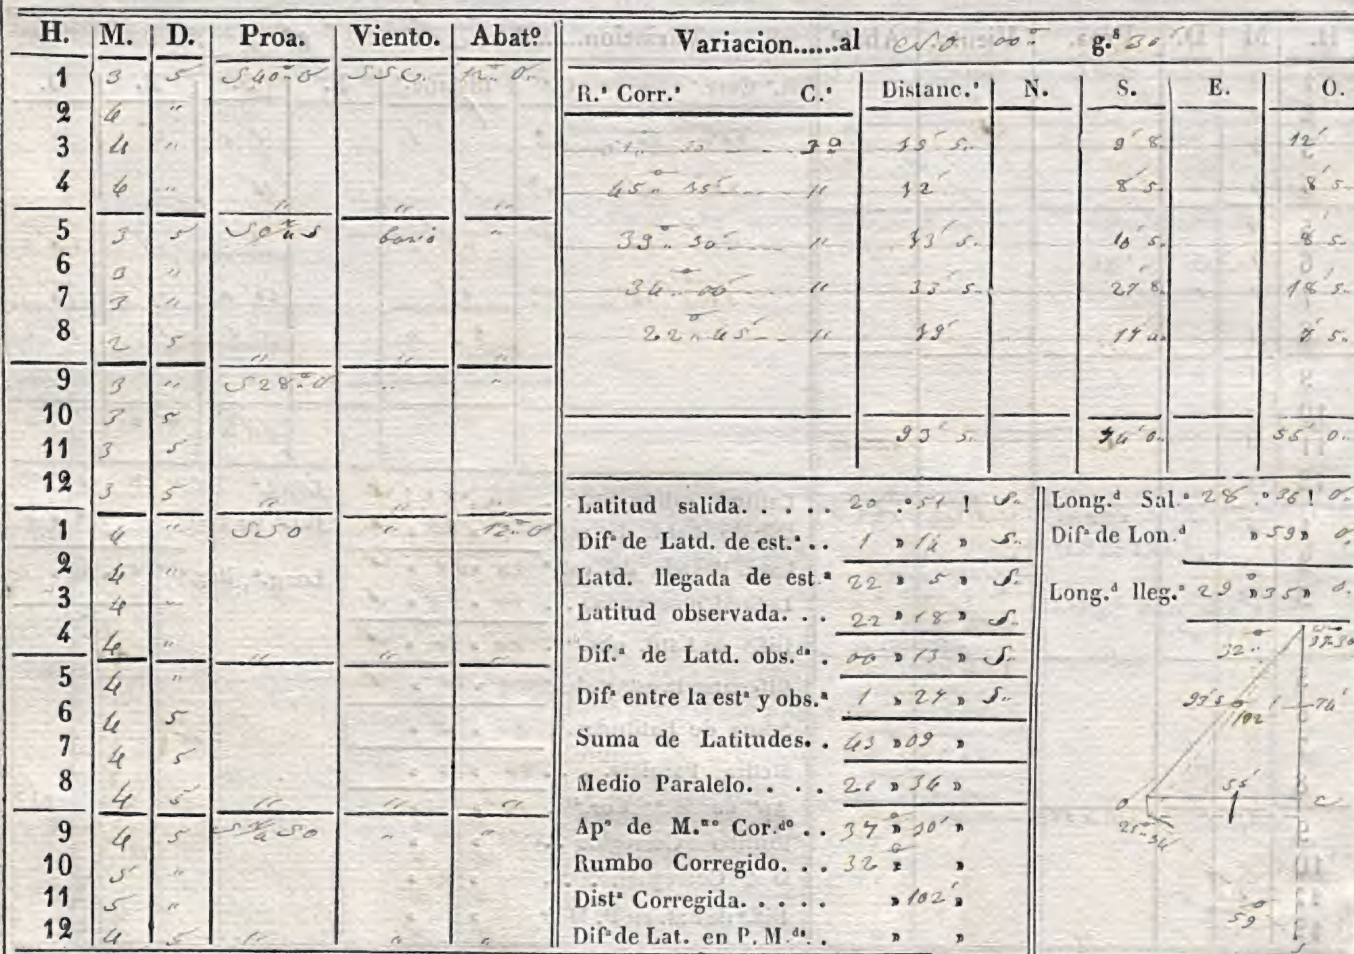 H. M. D. Proa. Viento. Abatº
1 3 5 S40º O 12º O.
2 4 "
3 4 "
4 4 " " " "
5 3 5 "
6 3 "
7 3 "
8 2 5 " " "
9 3 " S28º O " "
10 3 5
11 3 5
12 3 5 " " "
1 4 " SSO " 12º O
2 4 "
3 4 "
4 4 " " " "
5 4 "
6 4 5
7 4 5
8 4 5 " " "
9 4 5 " "
10 5 "
11 5 "
12 4 5 " " "
Variacion......al 00º g.s 30'
R.s Corr.s C.s Distanc.s N. S. E. O.
3º 15' 5.. 9' 8.. 12'
45º 15' " 12' 8' 5.. 8' 5..
39º 30' " 13' 5.. 10' 5.. 8' 5..
34º 00' " 33' 5.. 27' 8.. 18' 5..
22º 45' " 19' 17' 4.. 7' 5..
93' 5.. 74' 0.. 55' 0..
Latitud salida. . . . . 20 º 51 ! S.
Difª de Latd. de est.ª . . 1 » 14 » S..
Latd. llegada de est.ª 22 » 5 » S.
Latitud observada. . . 22 » 18 » S.
Dif.ª de Latd. obs.da . 00 » 13 » S.
Difª entre la estª y obs.ª 1 » 27 » S..
Suma de Latitudes. . 43 » 09 »
Medio Paralelo. . . . 21 » 34 »
Apº de M.no Cor.do . . 37 » 30' »
Rumbo Corregido. . . 32 º »
Distª Corregida. . . . . » 102' »
Difª de Lat. en P. M.da . . » »
Long.d Sal.ª 28 º 36 ! O.
Difª de Lon.d » 59 » O.
Long.d lleg.ª 29 » 35 » O.
32º 37º30
93'5 102 74'
55'
59º